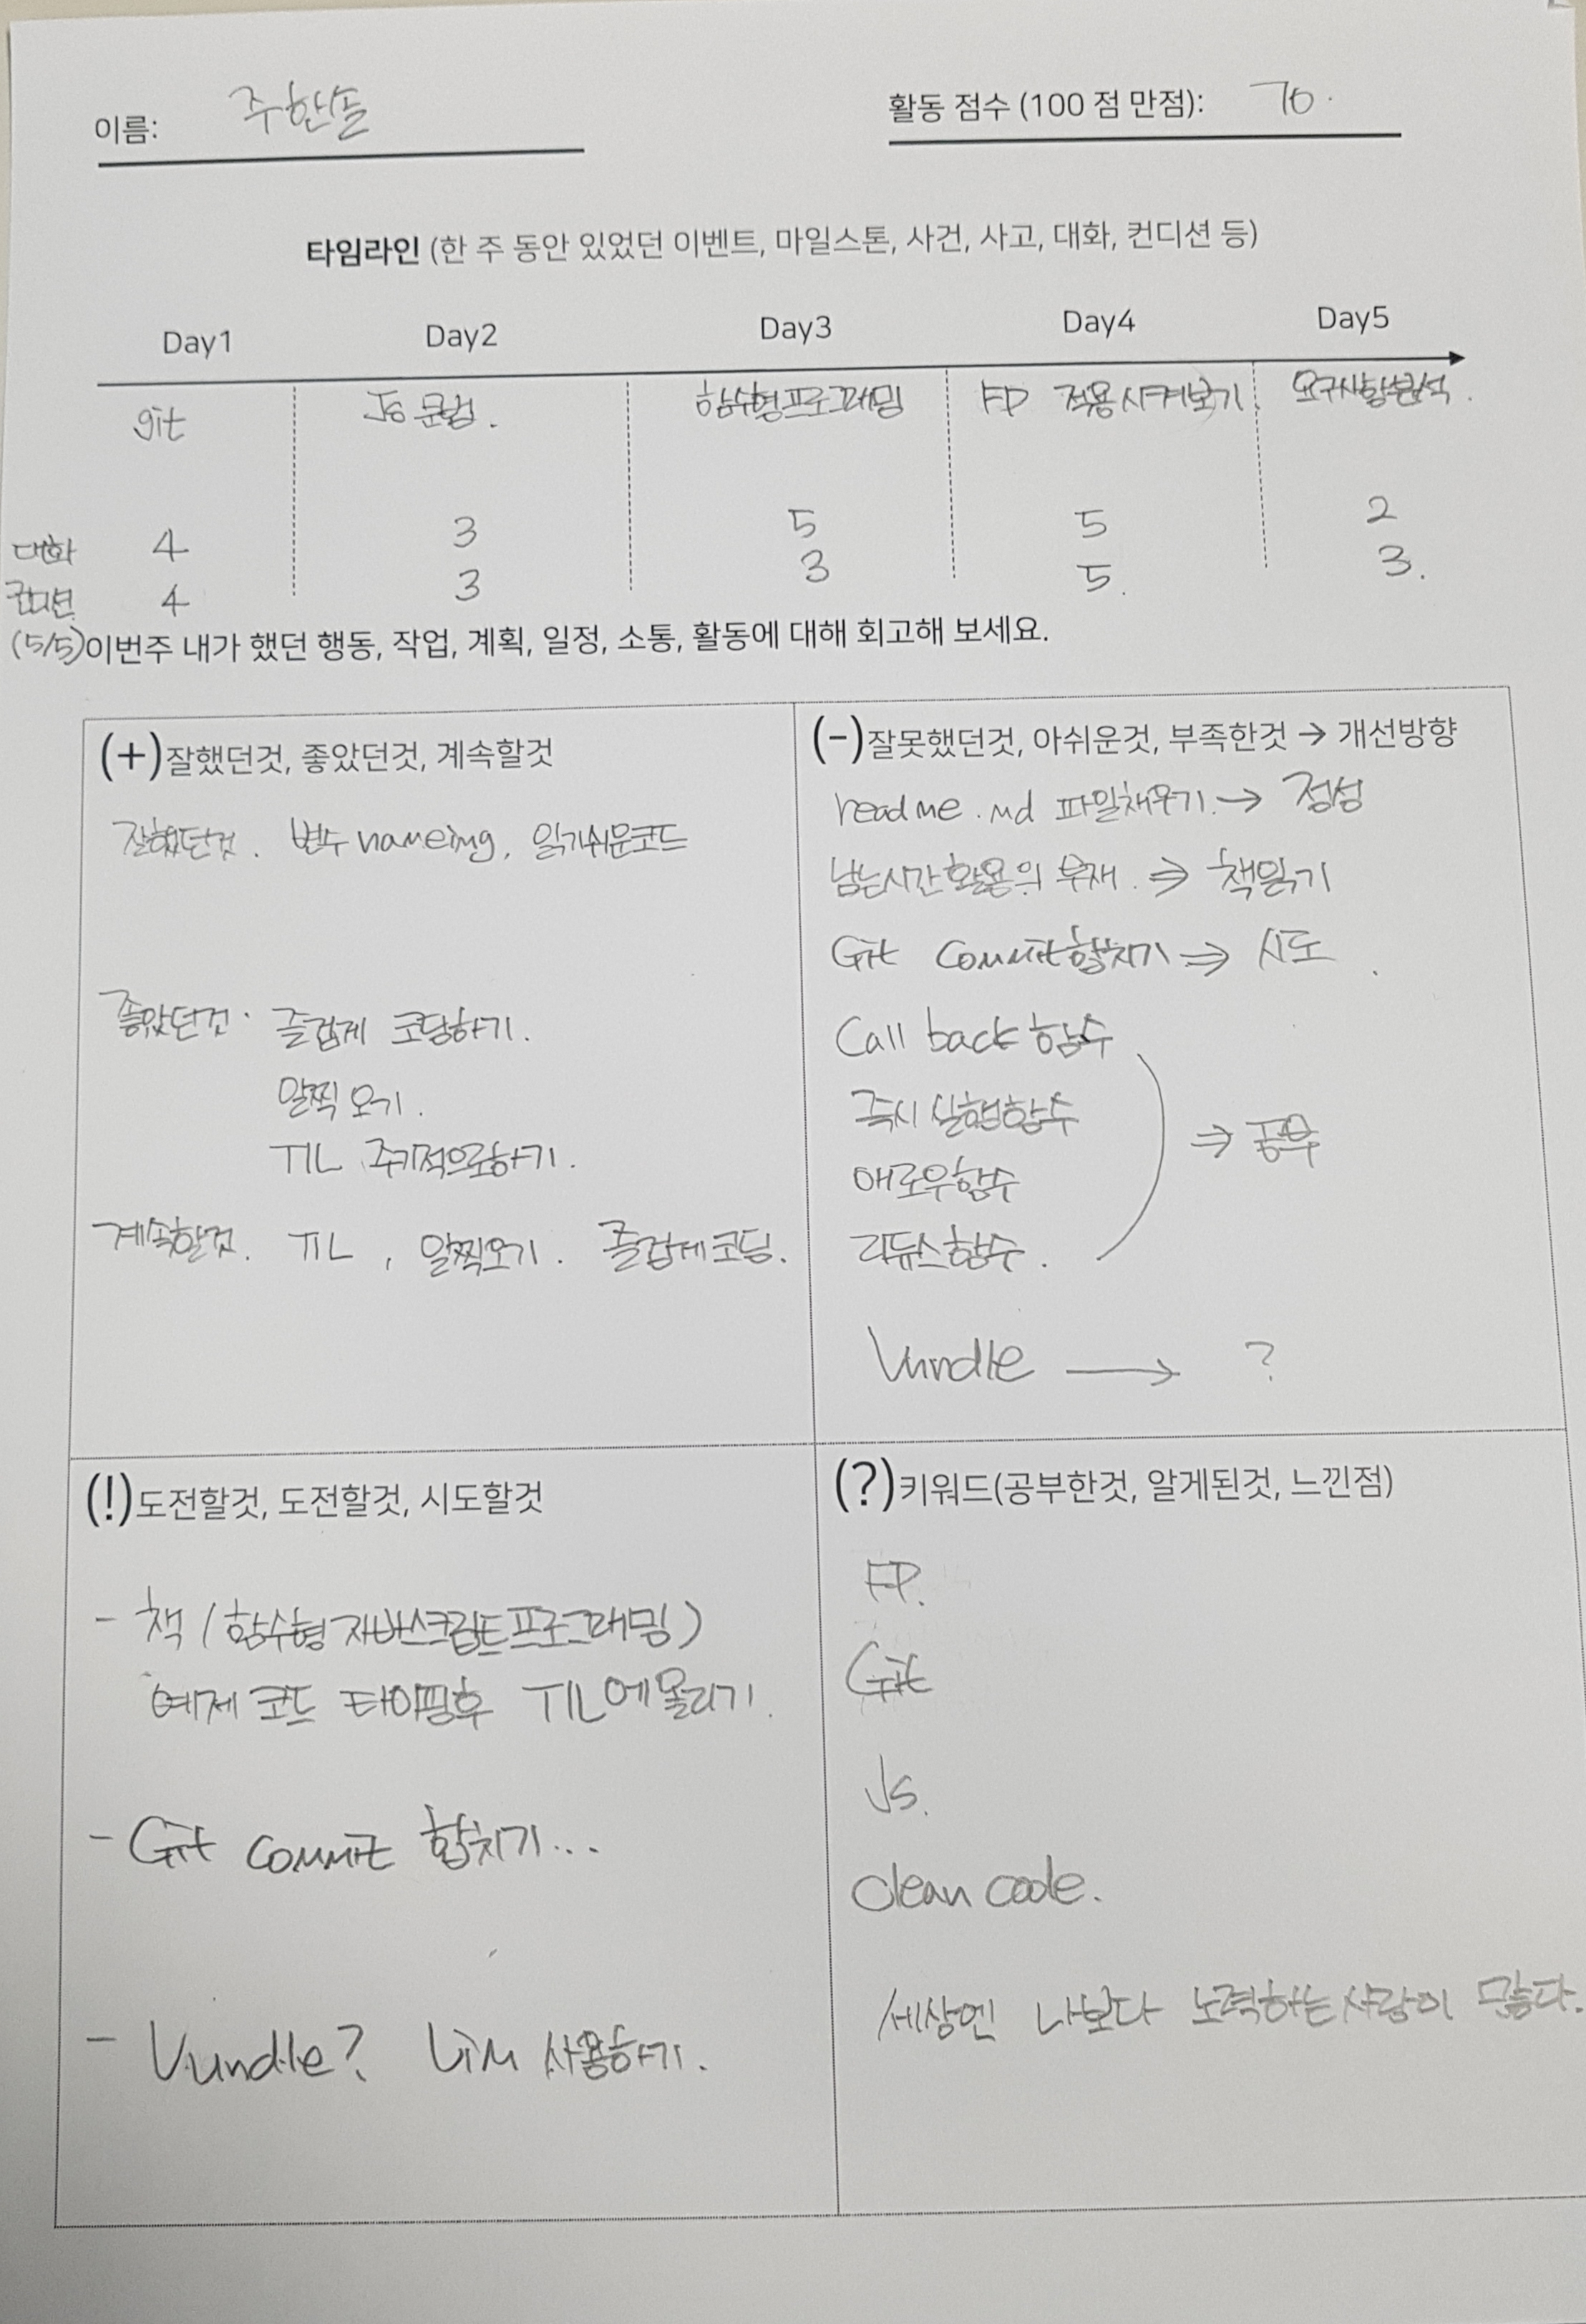 이름: 주한솔
활동 점수 (100 점 만점): 70.
타임라인 (한 주 동안 있었던 이벤트, 마일스톤, 사건, 사고, 대화, 컨디션 등)
Day1 Day2 Day3 Day4 Day5
git JS 문법. 함수형프로그래밍 FP 적용시켜보기. 요구사항분석.
대화 4 3 5 5 2
컨디션 4 3 3 5. 3.
(5/5)이번주 내가 했던 행동, 작업, 계획, 일정, 소통, 활동에 대해 회고해 보세요.
(+)잘했던것, 좋았던것, 계속할것
잘했던것. 변수 nameing, 읽기쉬운코드
좋았던것. 즐겁게 코딩하기.
일찍 오기.
TIL 주기적으로하기.
계속할것. TIL, 일찍오기. 즐겁게코딩.
(-)잘못했던것, 아쉬운것, 부족한것 → 개선방향
readme.md 파일채우기. → 정성
남는시간활용의 부재. ⇒ 책읽기
Git Commit합치기 ⇒ 시도.
Call back 함수
즉시 실행함수
⇒ 공부
애로우함수
리듀스함수.
Vundle → ?
(!)도전할것, 도전할것, 시도할것
- 책 (함수형 자바스크립트 프로그래밍)
예제 코드 타이핑후 TIL에올리기.
- Git Commit 합치기...
- Vundle? Vim 사용하기.
(?)키워드(공부한것, 알게된것, 느낀점)
FP.
Git
JS.
Clean code.
세상엔 나보다 노력하는사람이 많다.